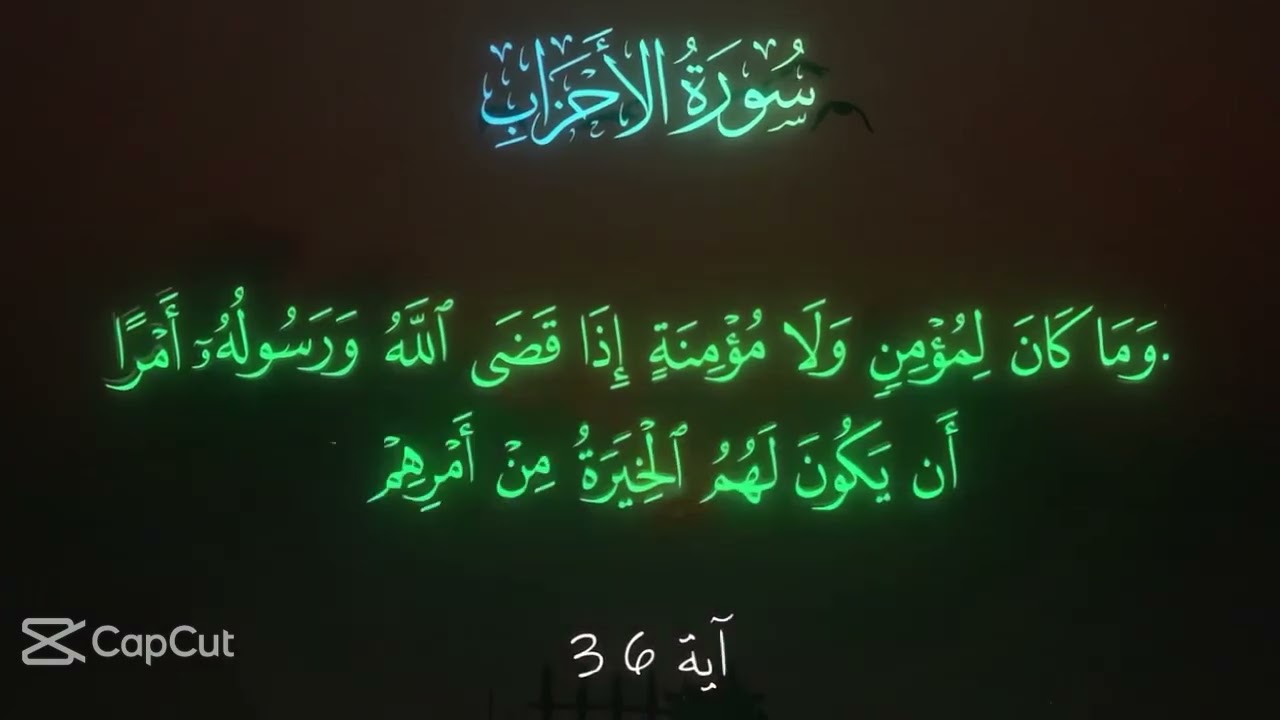 سُورَةُ الأَحْزَابِ
.وَمَا كَانَ لِمُؤْمِنٍ وَلَا مُؤْمِنَةٍ إِذَا قَضَى ٱللَّهُ وَرَسُولُهُۥٓ أَمْرًا
أَن يَكُونَ لَهُمُ ٱلْخِيَرَةُ مِنْ أَمْرِهِمْ
آية 36
CapCut